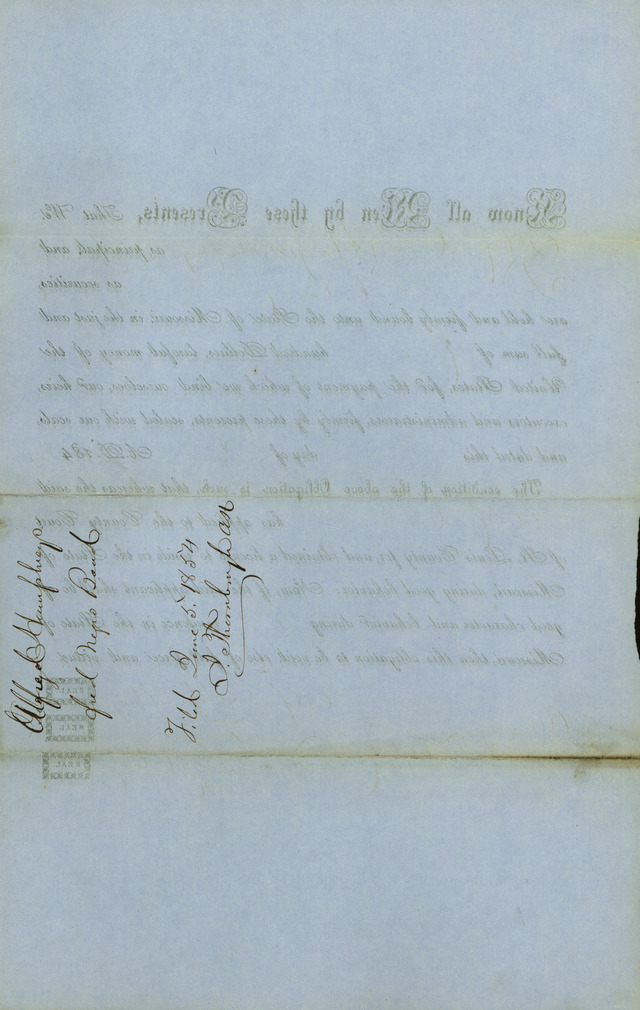 Alfred Humphreys
free Negro Bond
Filed June 5th 1854
Know all Men by these Presents, That We,
as principal, and
as securities,
are held and firmly bound unto the State of Missouri, in the just and
full sum of hundred Dollars, lawful money of the
United States, for the payment of which we bind ourselves, our heirs,
executors and administrators, firmly by these presents, sealed with our seals
and dated this day of A.D. 184
The condition of the above Obligation is such, that whereas the said
has applied to the County Court
of St. Louis County for, and obtained a license to reside in the State of
Missouri, during good behavior: Now, if the said applicant shall be of
good character and behavior during residence in the State of
Missouri, then this obligation to be void, else of full force and virtue.
SEAL
SEAL
SEAL